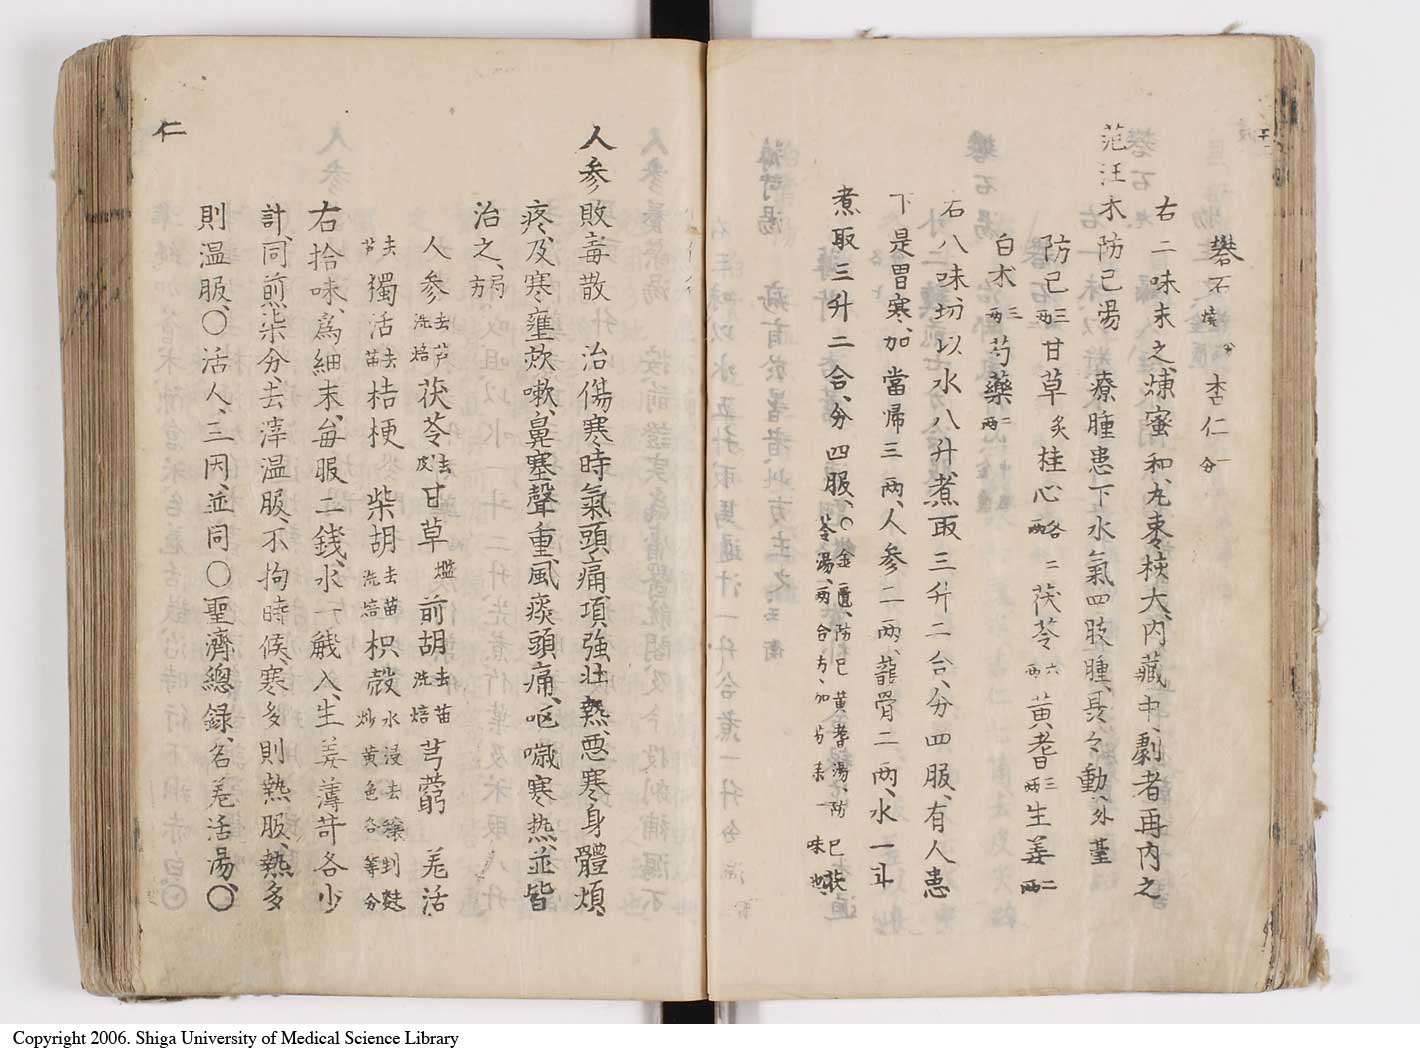 礬石 杏仁 一分
右二味末之、煉蜜和、丸棗核大、内藏中、劇者再内之
范汪木防己湯 療腫患下水氣四肢腫、聶々動、外䑓
防己三両甘草炙桂心略二両茯苓六両黄耆三両生姜二両
白朮三両芍藥二両
右八味切以水八升煮取三升二合、分四服、有人患
下是胃寒、加當帰三両、人参二両、龍骨二両、水一斗
煮取三升二合、分四服、〇金匱、防己黄耆湯、防已茯苓湯、両合方、加芍薬一味
人参敗毒散 治傷寒時氣頭痛、項強壮熱、悪寒身體煩
疼、及寒壅欬嗽、鼻塞聲重、風痰頭痛、嘔噦寒热、並皆
治之、方
人参去芦洗焙茯苓去皮甘草爁前胡去苗洗焙芎藭 羗活
去芦獨活去苗桔梗 柴胡去苗洗焙枳殻水浸去穰到麩炒黄色各等分
右拾味、為細末、毎服二錢、水一觥入、生姜薄荷各少
許、同煎柒分去滓温服、不拘時候、寒多則熱服、熱多
則温服、〇活人、三因、並同〇聖濟總録、名羗活湯、〇
仁
Copyright 2006. Shiga University of Medical Science Library